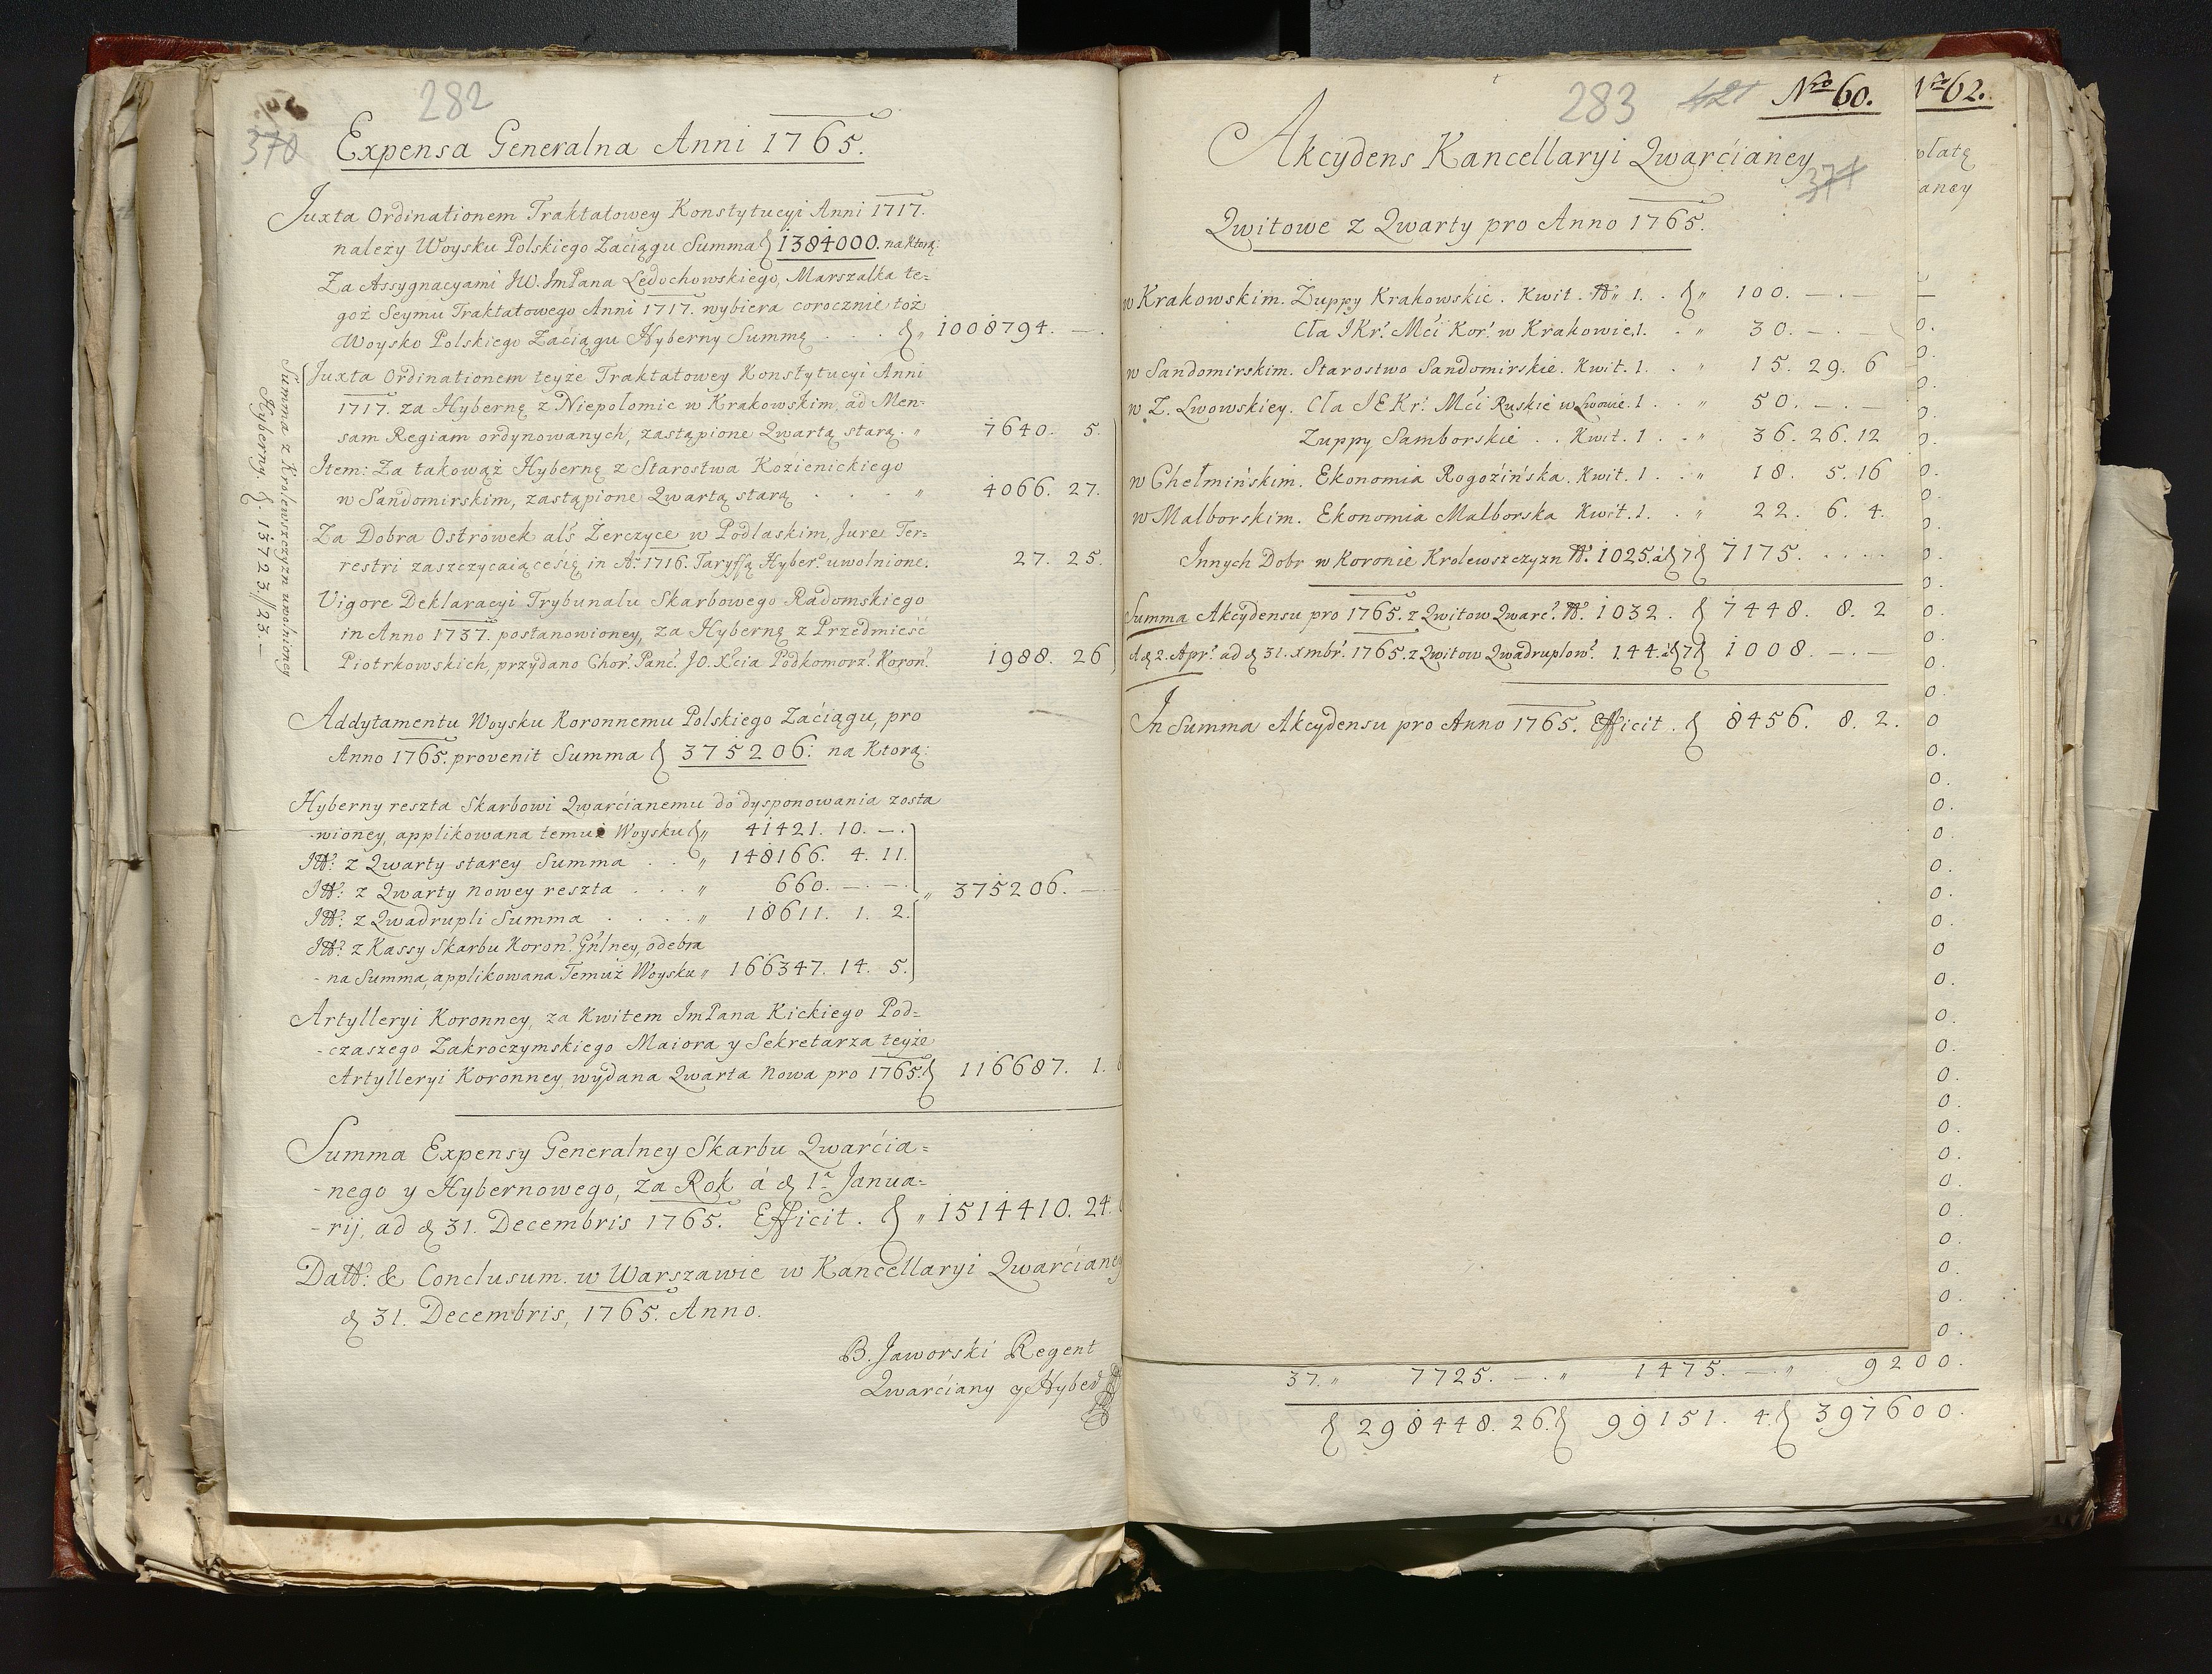 282
370
Expensa Generalna Anni 1765.
Juxta Ordinationem Traktatowey Konstytucyi Anni 1717.
nalezy Woysku Polskiego Zaciągu Summa 1384000. na ktorą:
Za Assygnacyami JW. ImPana Ledochowskiego, Marszalka te=
goż Seymu Traktatowego Anni 1717. wybiera corocznie toż
Woysko Polskiego Zaciągu Hyberny Summę . . . „ 1008794. —.
Summa z Krolewszczyzn uwolnioney
Hyberny. 13723.//23.—
Juxta Ordinationem teyże Traktatowey Konstytucyi Anni
1717. za Hybernę z Niepolomic w Krakowskim, ad Men=
sam Regiam ordynowanych, zastąpione Qwartą starą. „ 7640. 5.
Item: Za takowąż Hybernę z Starostwa Kozienickiego
w Sandomirskim, zastąpione Qwartą starą . . . . „ 4066. 27.
Za Dobra Ostrowek als Zerczyce w Podlaskim, Jure Ter=
restri zaszczycaiącesię in Ao 1716. Taryffą Hyber: uwolnione. 27. 25.
Vigore Deklaracyi Trybunalu Skarbowego Radomskiego
in Anno 1737. postanowioney, za Hybernę z Przedmieść
Piotrkowskich, przydano Chor: Panc: JO. Xcia Podkomorz: Koron: 1988. 26
Addytamentu Woysku Koronnemu Polskiego Zaciągu, pro
Anno 1765. provenit Summa 375206: na Ktorą:
Hyberny reszta Skarbowi Qwarcianemu do dysponowania zosta
-wioney, applikowana temuż Woysku „ 41421. 10. —.
Itt: z Qwarty starey Summa . . „ 148166. 4. 11.
Itt: z Qwarty nowey reszta . . . „ 660. —. —.
„ 375206. —
Itt: z Qwadrupli Summa . . . . „ 18611. 1. 2.
Itt: z Kassy Skarbu Koron: Gnlney, odebra
- na Summa, applikowana Temuż Woysku „ 166347. 14. 5.
Artylleryi Koronney, za Kwitem ImPana Kickiego Pod=
- czaszego Zakroczymskiego Maiora y Sekretarza teyże
Artylleryi Koronney, wydana Qwarta nowa pro 1765. 116687. 1.
Summa Expensy Generalney Skarbu Qwarcia=
- nego y Hybernowego, za Rok á d 1a Janua=
- rij, ad d 31. Decembris 1765. Efficit . „ 1514410. 24.
Datt: & Conclusum. w Warszawie w Kancellaryi Qwarcianey
d 31. Decembris, 1765. Anno.
B. Jaworski Regent
Qwarciany y Hyber
283 Nro 60.
Akcydens Kancellaryi Qwarcianey
374
Qwitowe z Qwarty pro Anno 1765.
w Krakowskim. Zuppy Krakowskie. Kwit. No 1. . „ 100. —.—
Cła JKr: Mci Kor: w Krakowie,1. . „ 30. —.—
w Sandomirskim. Starostwo Sandomirskie. Kwit. 1. . „ 15. 29. 6
w Z. Lwowskiey. Cła JEKr: Mci Ruskie w Lwowie. 1 . . „ 50. —.—
Zuppy Samborskie . . Kwit. 1 . . „ 36. 26. 12
w Chełmińskim. Ekonomia Rogozińska. Kwit. 1 . . „ 18. 5. 16
w Malborskim. Ekonomia Malborska Kwit. 1. . „ 22. 6. 4.
Innych Dobr w Koronie Krolewszczyzn No 1025. á 7 7175. . . . .
Summa Akcydensu pro 1765. z Qwitow Qwarc: No 1032 . 7448. 8. 2
A d 2. Apr: ad d 31. xmbr: 1765. z Qwitow Qwadruplow: 144. á 7 1008. —.—
In Summa Akcydensu pro Anno 1765. Efficit . 8456. 8. 2.
Nro 62.
płatę
aney
37. „ 7725. —. „ 1475. —. „ 9200.
298448. 26. 99151. 4. 397600.